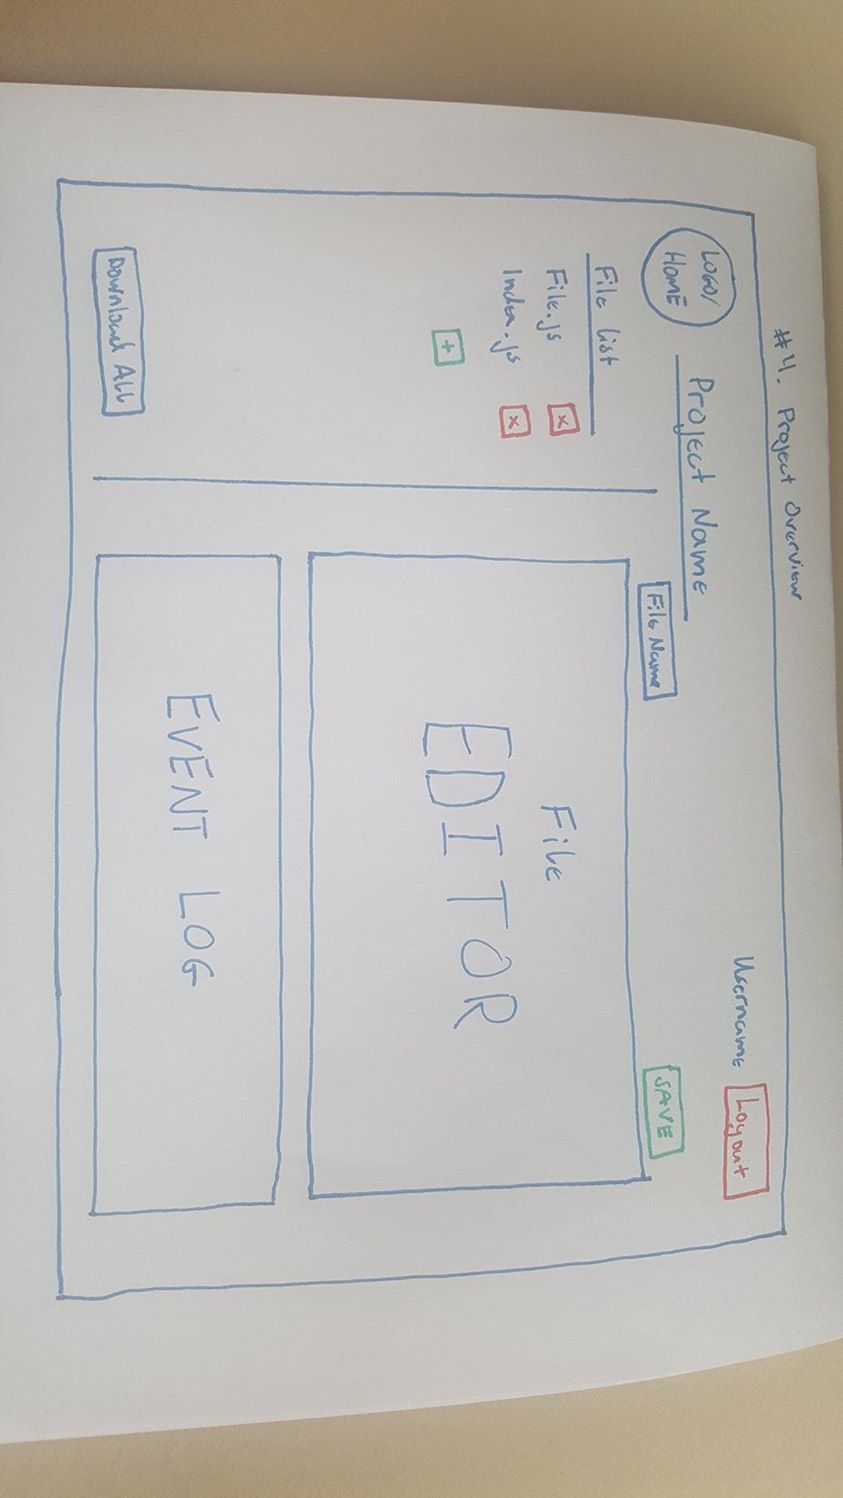 #4. Project Overview
LOGO/
HOME
Project Name
Username
Logout
File list
File.js
x
Index.js
x
+
Download All
File Name
SAVE
File
EDITOR
EVENT LOG